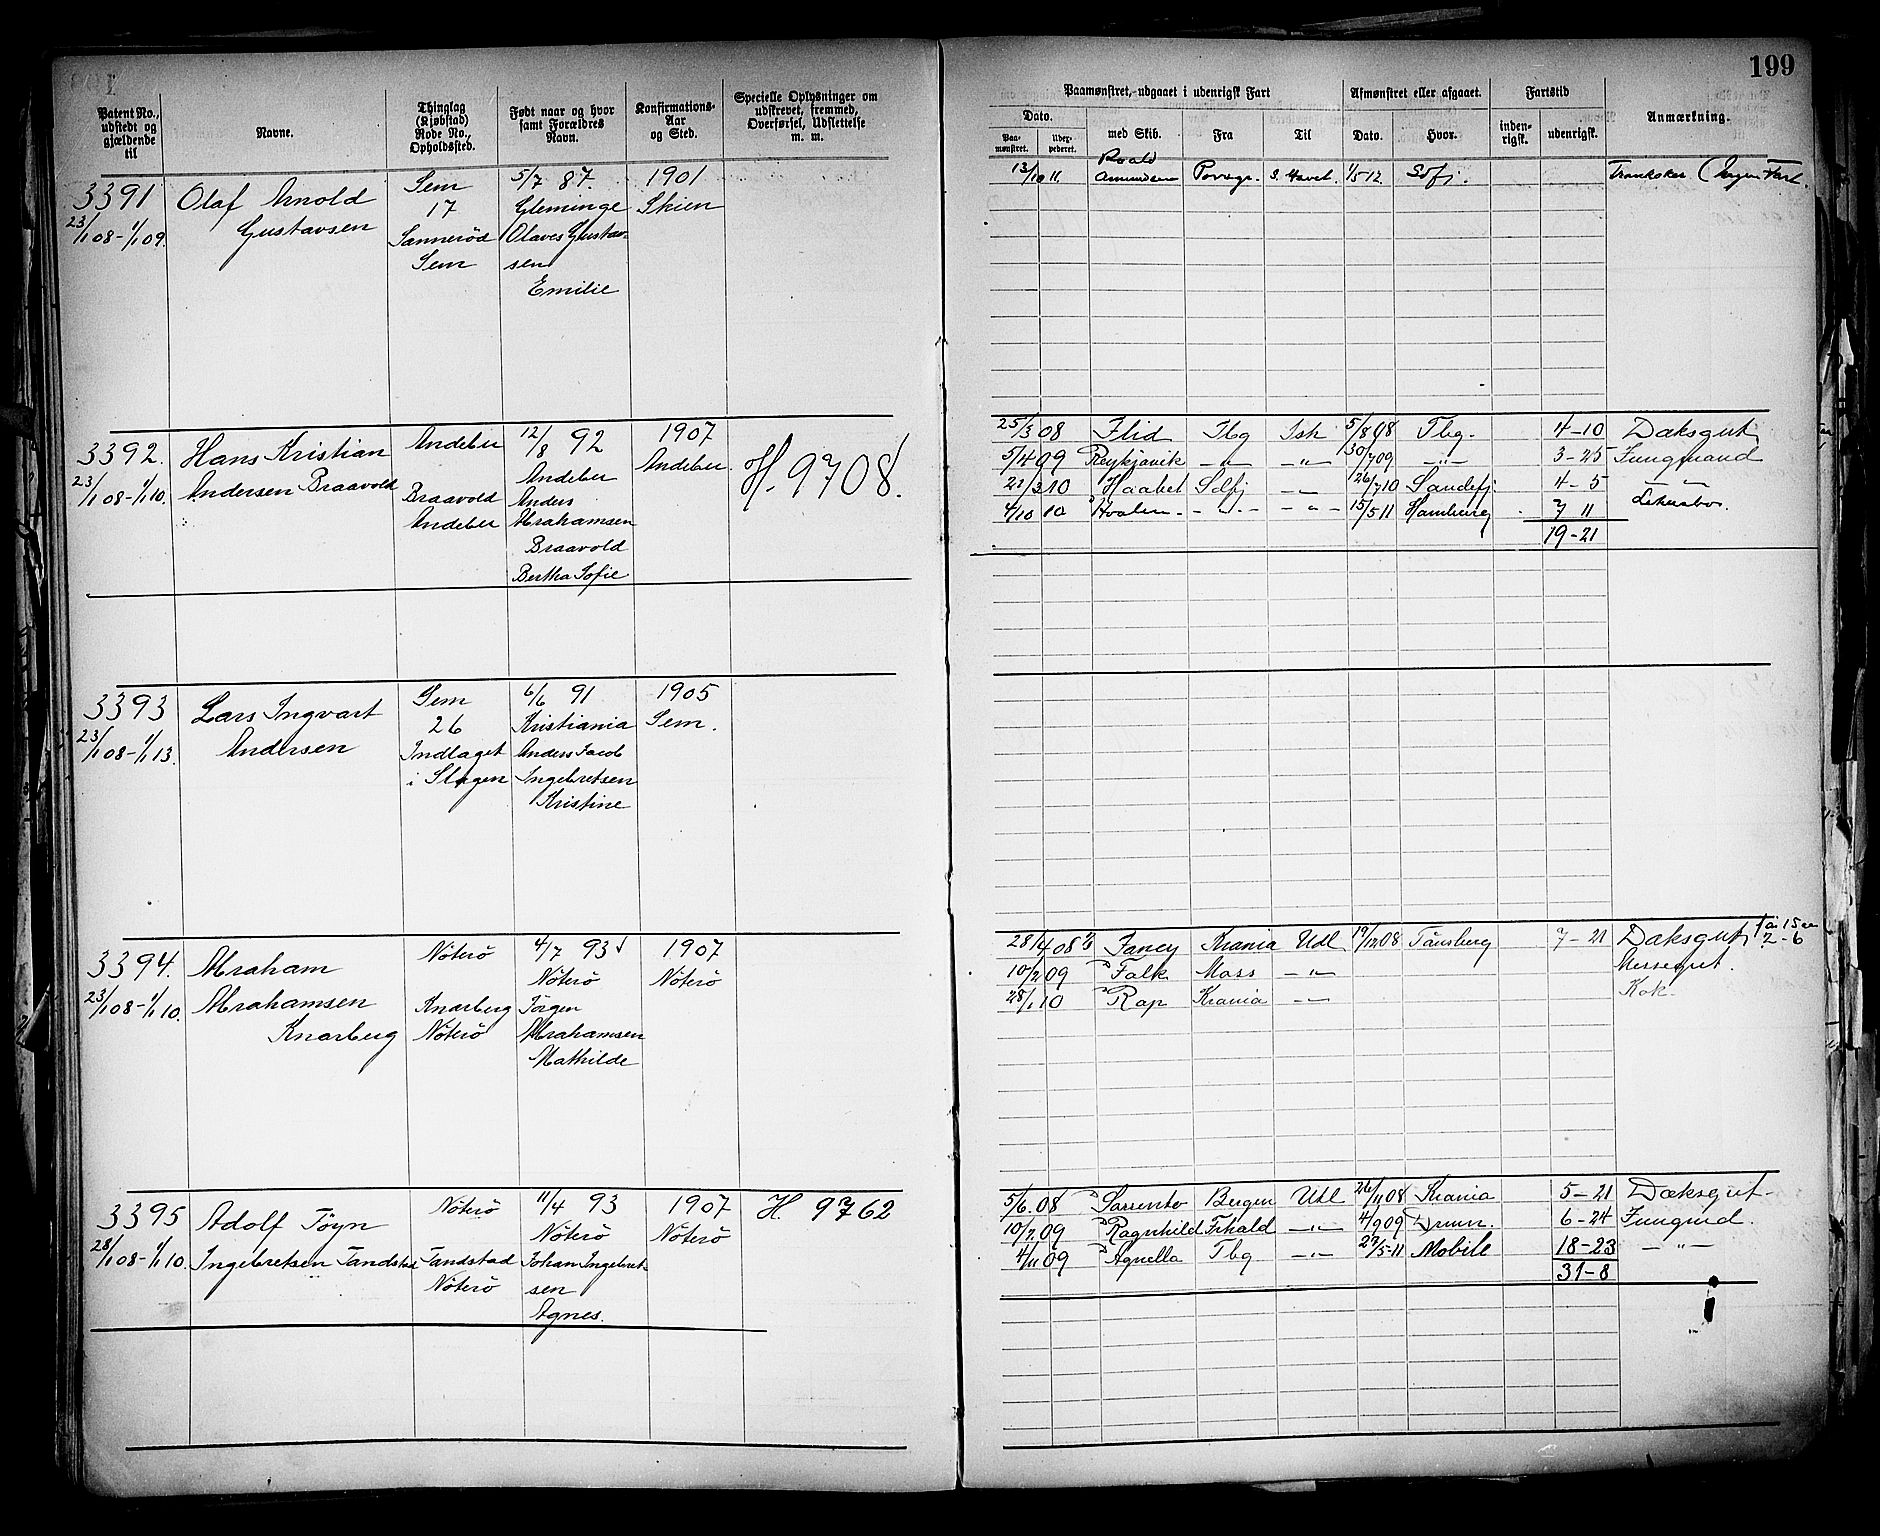 199
Patent No., udstedt og gjældende til
Navne.
Thinglag (Kjøbstad) Rode No., Opholdssted.
Født naar og hvor samt Forældres Navn.
Konfirmations-Aar og Sted.
Specielle Oplysninger om udskrevet, fremmed, Overførsel, Udslettelse m. m.
Paamønstret, udgaaet i udenrigsk Fart
Afmønstret eller afgaaet.
Fartstid
Anmærkning.
Dato.
Paa-mønstret.
med Skib.
Fra
Til
Dato.
Hvor.
inden-rigsk.
udenrigsk.
3391
23/1 08 - 1/1 09.
Olaf Arnold
Gustavsen
Sem
17
Sannerød
Sem
5/7 87.
Gleminge
Olaves Gustav-
sen
Emilie
1901
Skien
13/10 11. Roald Amundsen Porsgr. S. Havet. 1/5 12. Sofj.
3392.
23/1 08 - 1/1 10.
Hans Kristian
Andersen Braavold
Andebu
Braavold
Andebu
12/8 92
Andebu
Anders
Abrahamsen
Braavold
Bertha Sofie
1907
Andebu.
H. 9708.
25/3 08 Flid Tbg Ish 5/8 08 Tbg. 4-10 Dæksgut
5/4 09 Reykjavik -"- -"- 30/7 09 -"- 3-25 Jungmand
21/3 10 Haabet Sofj -"- 26/7 10 Sandefj. 4-5 -"-
4/10 10 Hvalen -"- -"- 15/5 11 Hamburg 7 11
19-21
3393
23/1 08 - 1/1 13.
Lars Ingvart
Andersen
Sem
26
Indlaget
i Slagen
6/6 91
Kristiania
Anders Jacob
Ingebretsen
Kristine
1905
Sem.
3394.
23/1 08 - 1/1 10.
Abraham
Abrahamsen
Knarberg
Nøterø
Knarberg
Nøterø
4/7 93
Nøterø
Jørgen
Abrahamsen
Mathilde
1907
Nøterø
28/4 08 Fancy Krania Udl 19/12 08 Tønsberg 7-21 Dæksgut 2-6
10/2 09 Falk Moss -"- Messegut.
28/1 10 Rap Krania -"- Kok.
3395
28/1 08 - 1/1 10.
Adolf Töyn
Ingebretsen Tandstad
Nøterø
Tandstad
Nøterø
11/4 93
Nøterø
Johan Ingebret-
sen
Agnes.
1907
Nøterø
H. 9762
5/6 08 Sorrento Bergen Udl 26/11 08 Krania 5-21 Dæksgut
10/2 09 Ragnhild Frhald -"- 4/9 09 Drmn. 6-24 Jungmd.
4/11 09 Agnella Tbg -"- 27/5 11 Mobile 18-23 -"-
31-8